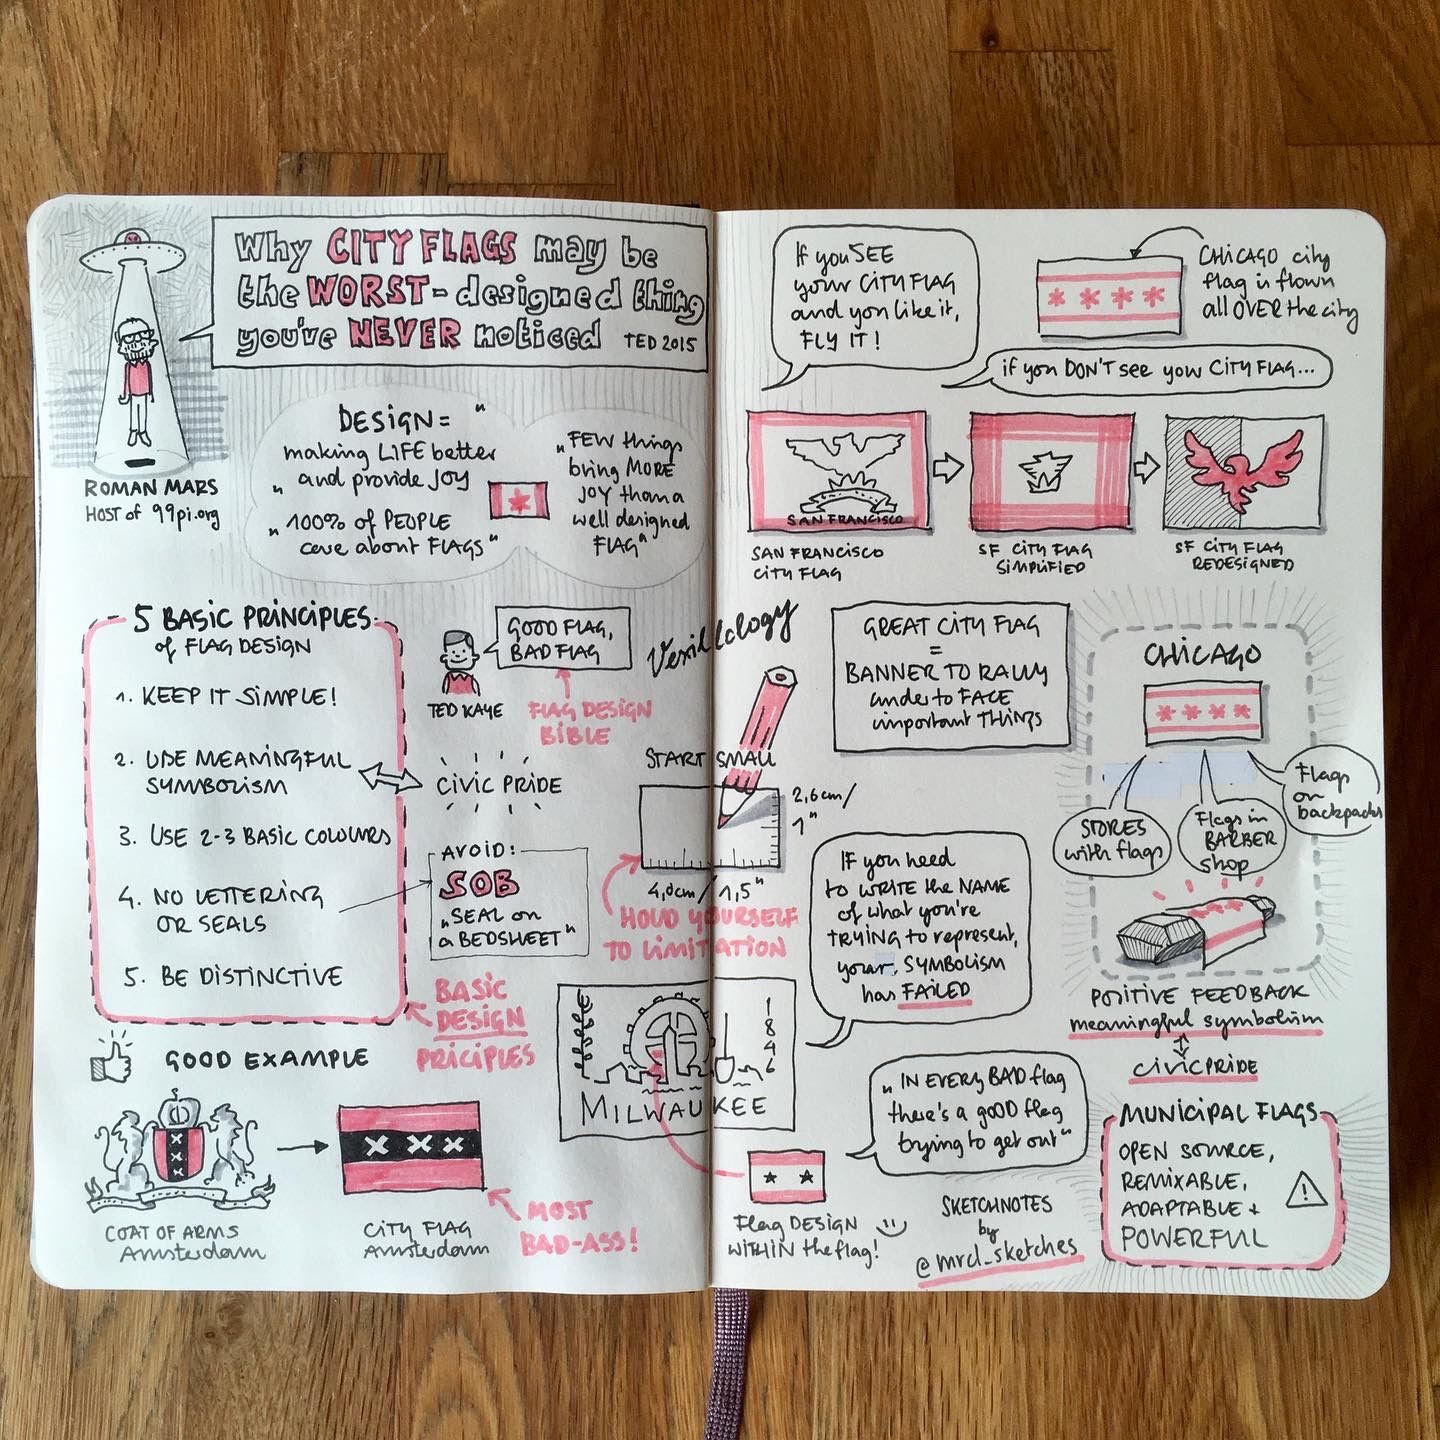 Why CITY FLAGS may be
the WORST-designed thing
you've NEVER noticed TED 2015
ROMAN MARS
HOST of 99pi.org
DESIGN = "
making LIFE better
" and provide JOY
" 100% of PEOPLE
care about FLAGS"
„FEW things
bring MORE
JOY than a
well designed
FLAG"
5 BASIC PRINCIPLES:
of FLAG DESIGN
1. KEEP IT SIMPLE!
2. USE MEANINGFUL
SYMBOLISM
3. USE 2-3 BASIC COLOURS
4. NO LETTERING
OR SEALS
5. BE DISTINCTIVE
GOOD FLAG,
BAD FLAG
TED KAYE
FLAG DESIGN
BIBLE
CIVIC PRIDE
AVOID:
SOB
„SEAL on
a BEDSHEET"
BASIC
DESIGN
PRICIPLES
GOOD EXAMPLE
COAT OF ARMS
Amsterdam
XXX
CITY FLAG
Amsterdam
MOST
BAD-ASS!
Vexillology
START SMALL
2,6cm/
1"
4,0cm/1,5"
HOLD YOURSELF
TO LIMITATION
1
8
4
6
MILWAUKEE
Flag DESIGN
WITHIN the flag!
If you SEE
your CITY FLAG
and you like it,
FLY IT!
CHICAGO city
flag is flown
all OVER the city
if you DON'T see your CITY FLAG...
SAN FRANCISCO
SAN FRANCISCO
CITY FLAG
SF CITY FLAG
SIMPLIFIED
SF CITY FLAG
REDESIGNED
GREAT CITY FLAG
=
BANNER TO RALLY
under to FACE
important THINGS
IF you need
to WRITE the NAME
of what you're
TRYING to represent,
your SYMBOLISM
has FAILED
„IN EVERY BAD flag
there's a good flag
trying to get out"
SKETCHNOTES
by
@mrcl_sketches
CHICAGO
STORES
with flags
Flags in
BARBER
shop
Flags
on
backpacks
POSITIVE FEEDBACK
meaningful symbolism
CIVIC PRIDE
MUNICIPAL FLAGS
OPEN SOURCE,
REMIXABLE,
ADAPTABLE +
POWERFUL